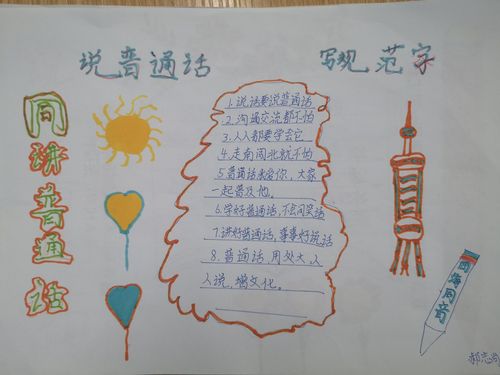 说普通话 写规范字
同讲普通话
1. 说话要说普通话
2. 沟通交流都不怕
3. 人人都要学会它
4. 走南闯北就不怕
5. 普通话来爱你，大家
一起普及他。
6. 学好普通话，不会闹笑话
7. 讲好普通话，事事好说话
8. 普通话，用处大，人
人说，增文化。
四海同音